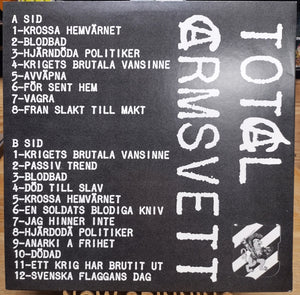 A SID
1-KROSSA HEMVÄRNET
2-BLODBAD
3-HJÄRNDÖDA POLITIKER
4-KRIGETS BRUTALA VANSINNE
5-AVVÄPNA
6-FÖR SENT HEM
7-VÄGRA
8-FRÅN SLAKT TILL MAKT
B SID
1-KRIGETS BRUTALA VANSINNE
2-PASSIV TREND
3-BLODBAD
4-DÖD TILL SLAV
5-KROSSA HEMVÄRNET
6-EN SOLDATS BLODIGA KNIV
7-JAG HINNER INTE
8-HJÄRDÖDA POLITIKER
9-ANARKI Å FRIHET
10-DÖDAD
11-ETT KRIG HAR BRUTIT UT
12-SVENSKA FLAGGANS DAG
TOTAL
ARMSVETT
NOW SPINNING